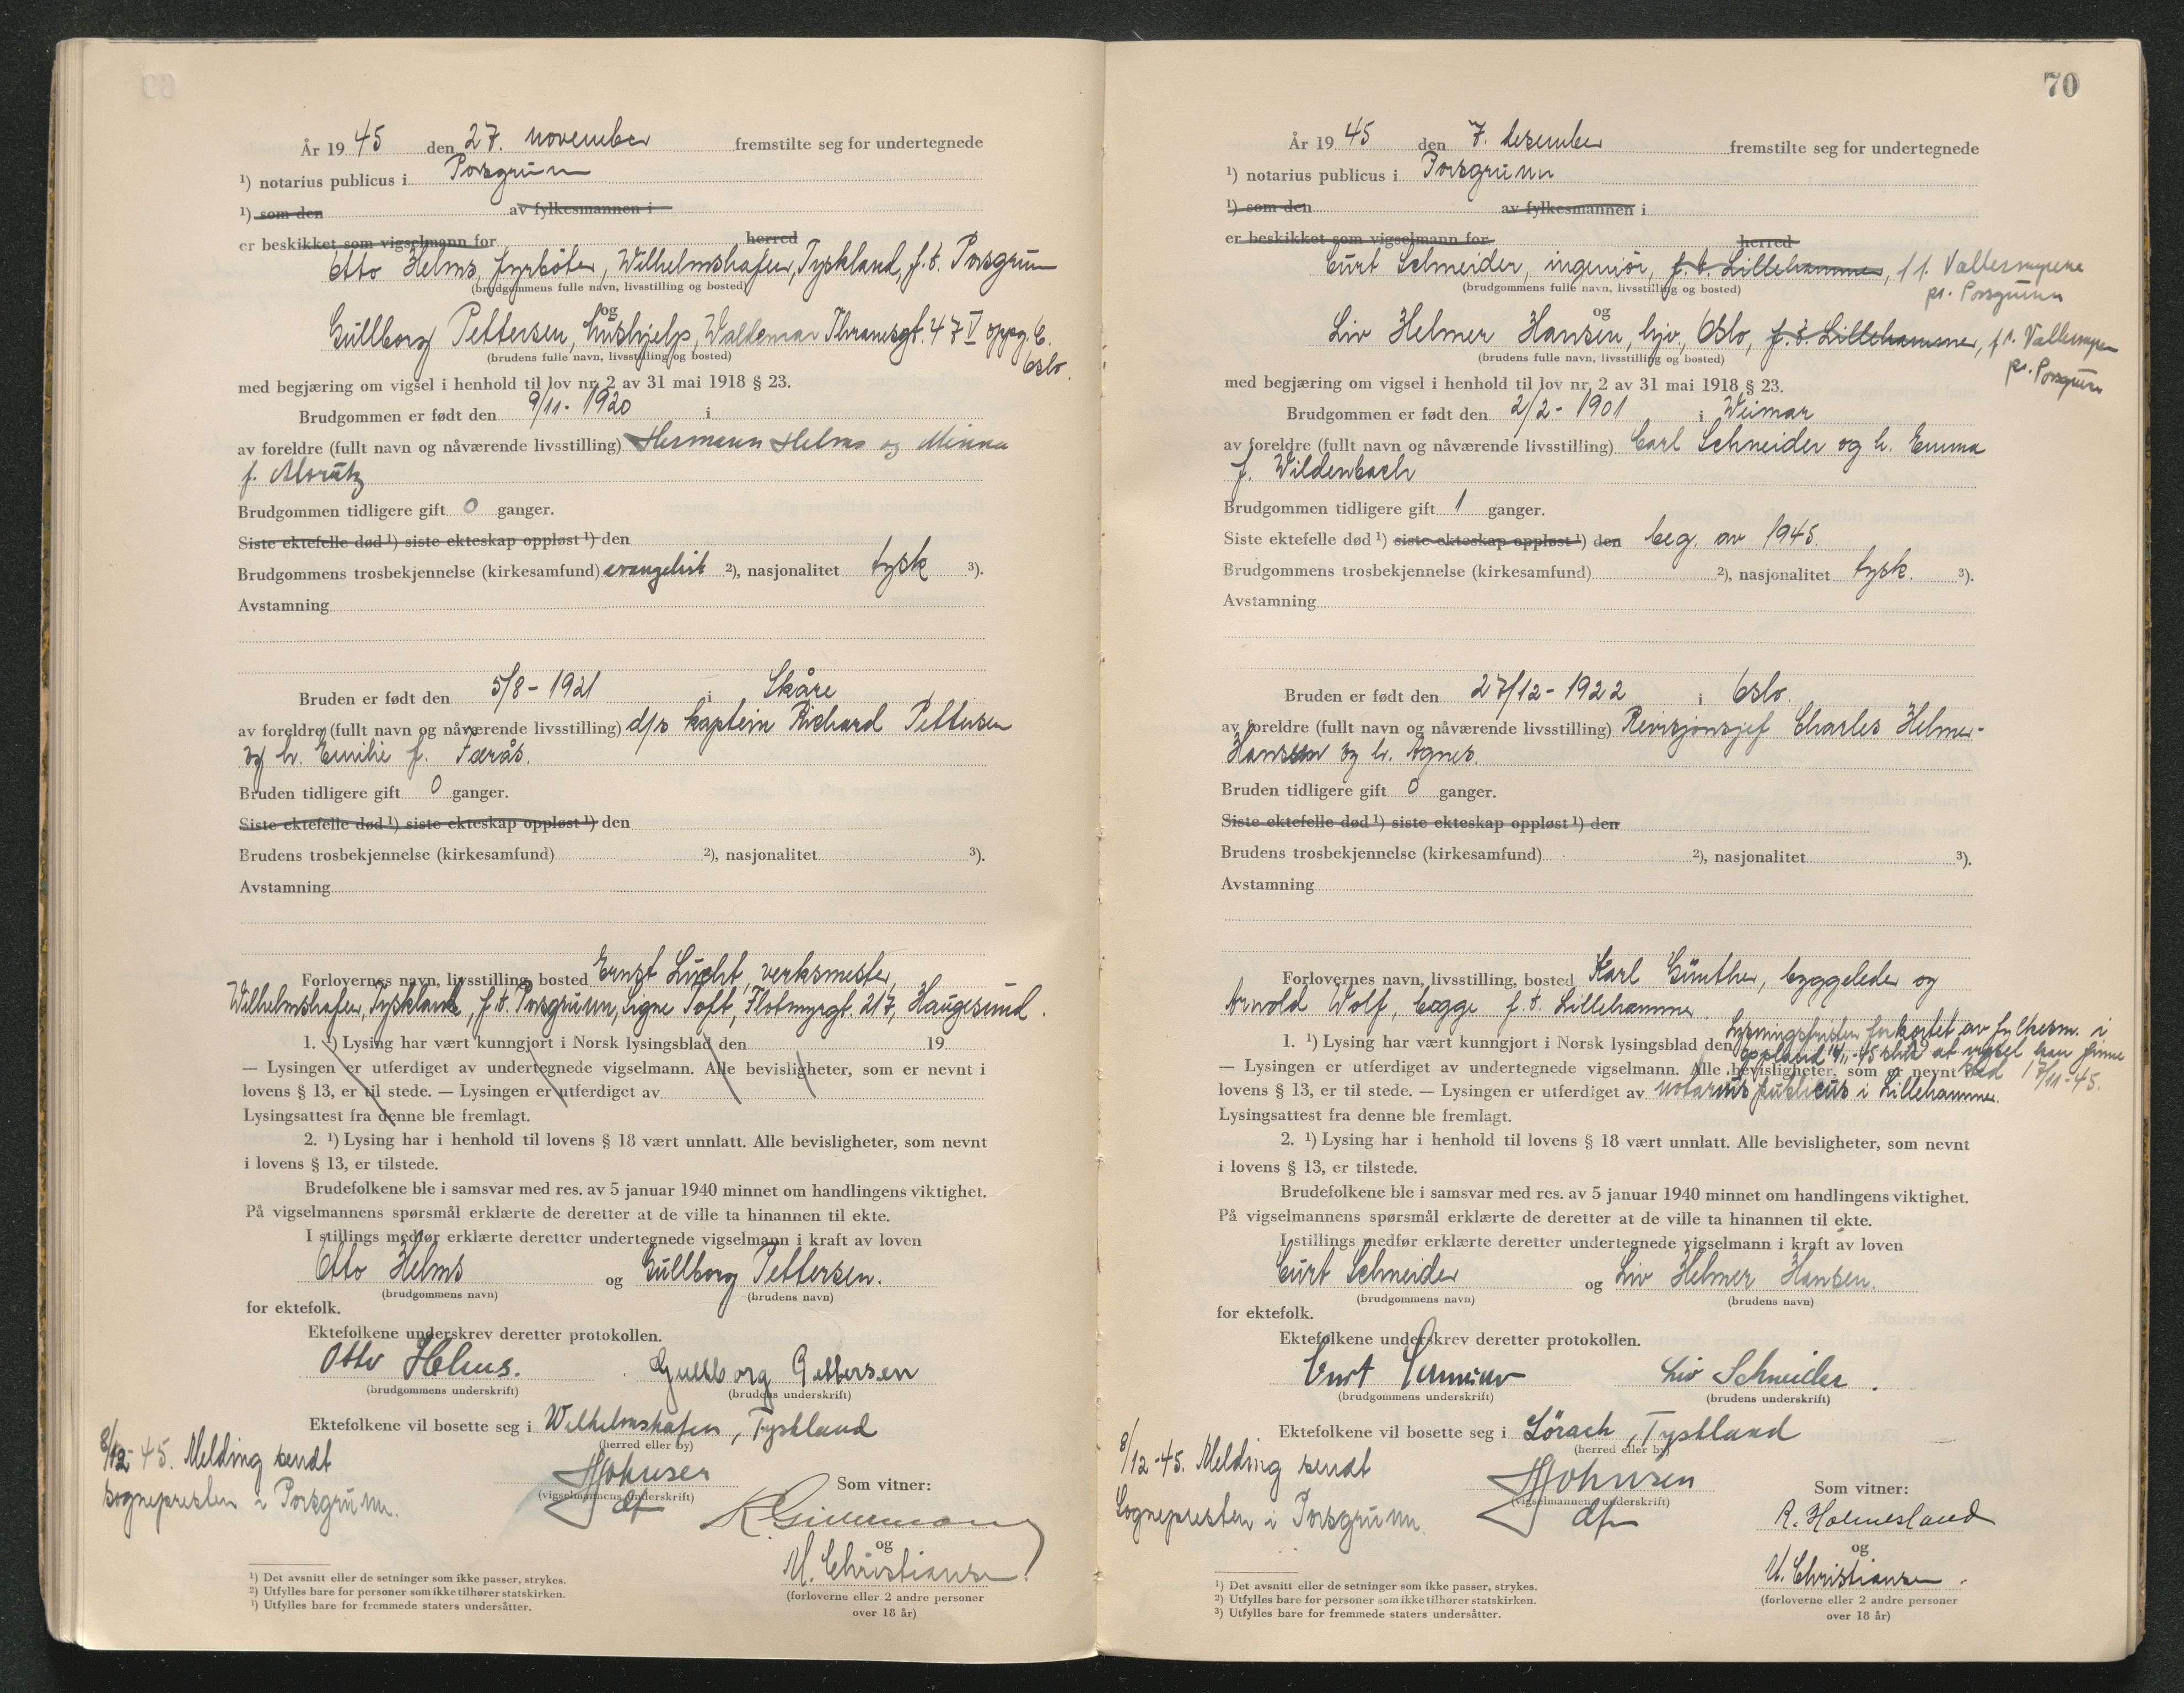 År 1945 den 27. november fremstilte seg for undertegnede
¹) notarius publicus i Porsgrunn
¹) som den av fylkesmannen i
er beskikket som vigselmann for herred
Otto Helms, fyrbøter, Wilhelmshafen, Tyskland, f. t. Porsgrunn
(brudgommens fulle navn, livsstilling og bosted)
og
Gullborg Pettersen, hushjelp, Waldemar Thranesgt. 47 V oppg. C.
Oslo.
(brudens fulle navn, livsstilling og bosted)
med begjæring om vigsel i henhold til lov nr. 2 av 31 mai 1918 § 23.
Brudgommen er født den 9/11- 1920 i
av foreldre (fullt navn og nåværende livsstilling) Hermann Helms og Minna
f. Moratz
Brudgommen tidligere gift 0 ganger.
Siste ektefelle død ¹) siste ekteskap oppløst ¹) den
Brudgommens trosbekjennelse (kirkesamfund) evangelisk ²), nasjonalitet tysk ³).
Avstamning
Bruden er født den 5/8 - 1921 i Skåre
av foreldre (fullt navn og nåværende livsstilling) d/s kaptein Richard Pettersen
og h. Emilie f. Færås.
Bruden tidligere gift 0 ganger.
Siste ektefelle død ¹) siste ekteskap oppløst ¹) den
Brudens trosbekjennelse (kirkesamfund) ²), nasjonalitet ³).
Avstamning
Forlovernes navn, livsstilling, bosted Ernst Lucht, verksmester,
Wilhelmshafen, Tyskland, f. t. Porsgrunn, Signe Toft, Flotmyrgt. 217, Haugesund.
1. ¹) Lysing har vært kunngjort i Norsk lysingsblad den 19
— Lysingen er utferdiget av undertegnede vigselmann. Alle bevisligheter, som er nevnt i
lovens § 13, er til stede. — Lysingen er utferdiget av
Lysingsattest fra denne ble fremlagt.
2. ¹) Lysing har i henhold til lovens § 18 vært unnlatt. Alle bevisligheter, som nevnt
i lovens § 13, er tilstede.
Brudefolkene ble i samsvar med res. av 5 januar 1940 minnet om handlingens viktighet.
På vigselmannens spørsmål erklærte de deretter at de ville ta hinannen til ekte.
I stillings medfør erklærte deretter undertegnede vigselmann i kraft av loven
Otto Helms og Gullborg Pettersen.
(brudgommens navn) (brudens navn)
for ektefolk.
Ektefolkene underskrev deretter protokollen.
Otto Helms. Gullborg Pettersen
(brudgommens underskrift) (brudens underskrift)
Ektefolkene vil bosette seg i Wilhelmshafen, Tyskland
(herred eller by)
8/12-45. Melding sendt
sognepresten i Porsgrunn.
HJohnsen
(vigselmannens underskrift)
df
Som vitner:
og
M. Christiansen
(forloverne eller 2 andre personer
over 18 år)
¹) Det avsnitt eller de setninger som ikke passer, strykes.
²) Utfylles bare for personer som ikke tilhører statskirken.
³) Utfylles bare for fremmede staters undersåtter.
70
År 1945 den 7. desember fremstilte seg for undertegnede
¹) notarius publicus i Porsgrunn
¹) som den av fylkesmannen i
er beskikket som vigselmann for herred
Curt Schneider, ingeniør, f. t. Lillehammer, f. t. Vallermyrene
pr. Porsgrunn
(brudgommens fulle navn, livsstilling og bosted)
og
Liv Helmer Hansen, hjv., Oslo, f. t. Lillehammer, f. t. Vallermyren
pr. Porsgrunn
(brudens fulle navn, livsstilling og bosted)
med begjæring om vigsel i henhold til lov nr. 2 av 31 mai 1918 § 23.
Brudgommen er født den 2/2 - 1901 i Weimar
av foreldre (fullt navn og nåværende livsstilling) Carl Schneider og h. Emma
f. Wildenbach
Brudgommen tidligere gift 1 ganger.
Siste ektefelle død ¹) siste ekteskap oppløst ¹) den beg. av 1945.
Brudgommens trosbekjennelse (kirkesamfund) ²), nasjonalitet tysk. ³).
Avstamning
Bruden er født den 27/12 - 1922 i Oslo.
av foreldre (fullt navn og nåværende livsstilling) Revisjonsjef Charles Helmer-
Hansen og h. Agnes.
Bruden tidligere gift 0 ganger.
Siste ektefelle død ¹) siste ekteskap oppløst ¹) den
Brudens trosbekjennelse (kirkesamfund) ²), nasjonalitet ³).
Avstamning
Forlovernes navn, livsstilling, bosted Karl Günther, byggeleder og
Arnold Wolf, begge f. t. Lillehammer.
Lysningsfristen forkortet av fylkesm. i
1. ¹) Lysing har vært kunngjort i Norsk lysingsblad den 19
Oppland 14/11-45 slik at vigsel kan finne
sted 17/11-45.
— Lysingen er utferdiget av undertegnede vigselmann. Alle bevisligheter, som er nevnt i
lovens § 13, er til stede. — Lysingen er utferdiget av notarius publicus i Lillehammer.
Lysingsattest fra denne ble fremlagt.
2. ¹) Lysing har i henhold til lovens § 18 vært unnlatt. Alle bevisligheter, som nevnt
i lovens § 13, er tilstede.
Brudefolkene ble i samsvar med res. av 5 januar 1940 minnet om handlingens viktighet.
På vigselmannens spørsmål erklærte de deretter at de ville ta hinannen til ekte.
I stillings medfør erklærte deretter undertegnede vigselmann i kraft av loven
Curt Schneider og Liv Helmer Hansen.
(brudgommens navn) (brudens navn)
for ektefolk.
Ektefolkene underskrev deretter protokollen.
Curt Schneider Liv Schneider.
(brudgommens underskrift) (brudens underskrift)
Ektefolkene vil bosette seg i Lörach, Tyskland
(herred eller by)
8/12-45. Melding sendt
Sognepresten i Porsgrunn.
HJohnsen
(vigselmannens underskrift)
df
Som vitner:
R. Holmesland
og
M. Christiansen.
(forloverne eller 2 andre personer
over 18 år)
¹) Det avsnitt eller de setninger som ikke passer, strykes.
²) Utfylles bare for personer som ikke tilhører statskirken.
³) Utfylles bare for fremmede staters undersåtter.